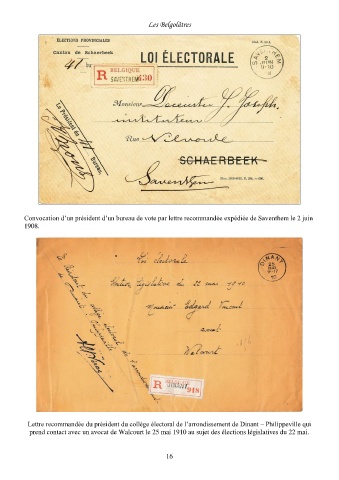 Les Belgolâtres
ÉLECTIONS PROVINCIALES
Canton de Schaerbeek
LOI ÉLECTORALE
SAVENTHEM
R BELGIQUE
SAVENTHEM 430
Monsieur J. Joseph,
Rue Vilvorde
SCHAERBEEK
Saventhem
Le Président du 41 Bureau,
Convocation d'un président d'un bureau de vote par lettre recommandée expédiée de Saventhem le 2 juin
1908.
Loi électorale
DINANT
Élection législative du 22 mai 1910
Monsieur Edgard
avocat
Walcourt
Le Président du collège électoral de l'arrondissement
R DINANT 918
Lettre recommandée du président du collège électoral de l'arrondissement de Dinant – Philippeville qui
prend contact avec un avocat de Walcourt le 25 mai 1910 au sujet des élections législatives du 22 mai.
16